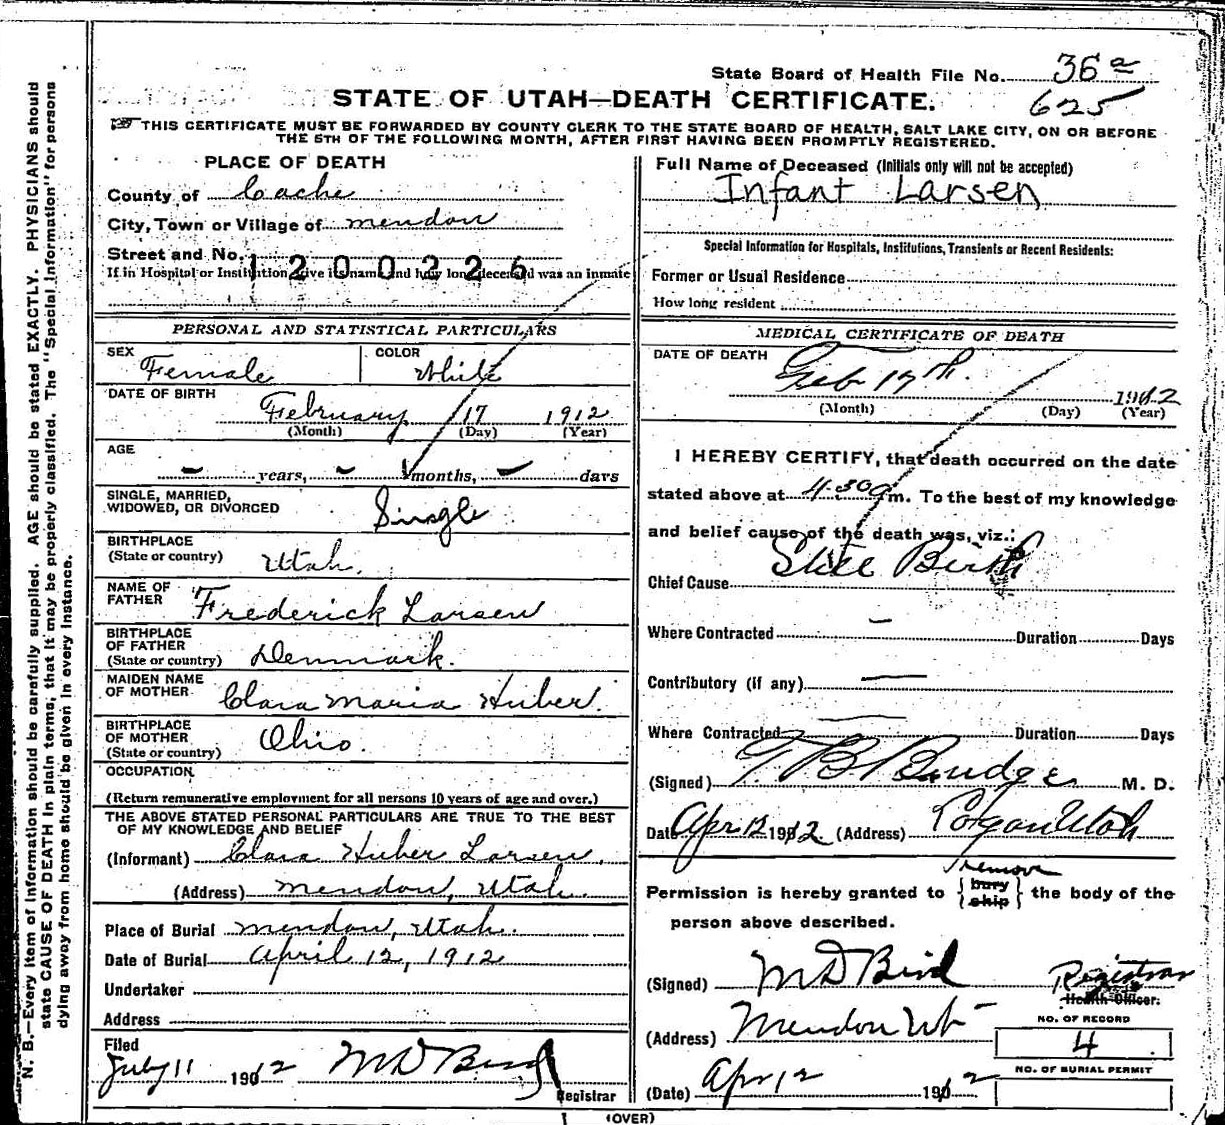 State Board of Health File No. 36 a
625
STATE OF UTAH—DEATH CERTIFICATE.
THIS CERTIFICATE MUST BE FORWARDED BY COUNTY CLERK TO THE STATE BOARD OF HEALTH, SALT LAKE CITY, ON OR BEFORE
THE 5TH OF THE FOLLOWING MONTH, AFTER FIRST HAVING BEEN PROMPTLY REGISTERED.
PLACE OF DEATH
County of Cache
City, Town or Village of mendon
Street and No.
1200226
If in Hospital or Institution give its name and how long deceased was an inmate
PERSONAL AND STATISTICAL PARTICULARS
SEX Female COLOR White
DATE OF BIRTH
February 17 1912
(Month) (Day) (Year)
AGE
– years, – months, – days
SINGLE, MARRIED,
WIDOWED, OR DIVORCED Single
BIRTHPLACE
(State or country) Utah.
NAME OF
FATHER Frederick Larsen
BIRTHPLACE
OF FATHER
(State or country) Denmark.
MAIDEN NAME
OF MOTHER Clara Maria Huber.
BIRTHPLACE
OF MOTHER
(State or country) Ohio.
OCCUPATION
(Return remunerative employment for all persons 10 years of age and over.)
THE ABOVE STATED PERSONAL PARTICULARS ARE TRUE TO THE BEST
OF MY KNOWLEDGE AND BELIEF
(Informant) Clara Huber Larsen.
(Address) mendon, Utah.
Place of Burial mendon, Utah.
Date of Burial April 12, 1912
Undertaker
Address
Filed
July 11 1912 M D Bird
Registrar
Full Name of Deceased (Initials only will not be accepted)
Infant Larsen
Special Information for Hospitals, Institutions, Transients or Recent Residents:
Former or Usual Residence
How long resident
MEDICAL CERTIFICATE OF DEATH
DATE OF DEATH Feb 17th. 1912
(Month) (Day) (Year)
I HEREBY CERTIFY, that death occurred on the date
stated above at 4.30 a m. To the best of my knowledge
and belief cause of the death was, viz.:
Chief Cause Still Birth
Where Contracted – Duration Days
Contributory (if any) —
Where Contracted — Duration Days
(Signed) T B Budge M. D.
Date Apr 12 1912 (Address) Logan Utah
remove
Permission is hereby granted to { bury ship } the body of the
person above described.
(Signed) M D Bird Registrar
Health Officer.
(Address) Mendon Ut
NO. OF RECORD
4
NO. OF BURIAL PERMIT
(Date) Apr 12 1912
(OVER)
N. B.—Every item of information should be carefully supplied. AGE should be stated EXACTLY. PHYSICIANS should
state CAUSE OF DEATH in plain terms, that it may be properly classified. The "Special Information" for persons
dying away from home should be given in every instance.